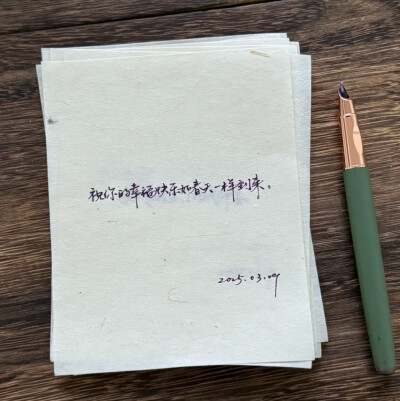 祝你的幸福快乐如春天一样到来。
2025.03.09